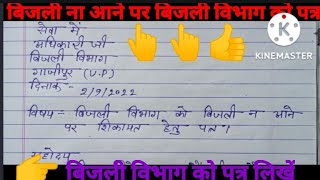 बिजली ना आने पर बिजली विभाग को पत्र
सेवा में
अधिकारी जी
बिजली विभाग
गाजीपुर (U.P)
दिनांक 2/9/2022
विषय = बिजली विभाग को बिजली न आने
पर शिकायत हेतु पत्र।
महोदय
बिजली विभाग को पत्र लिखें
KINEMASTER